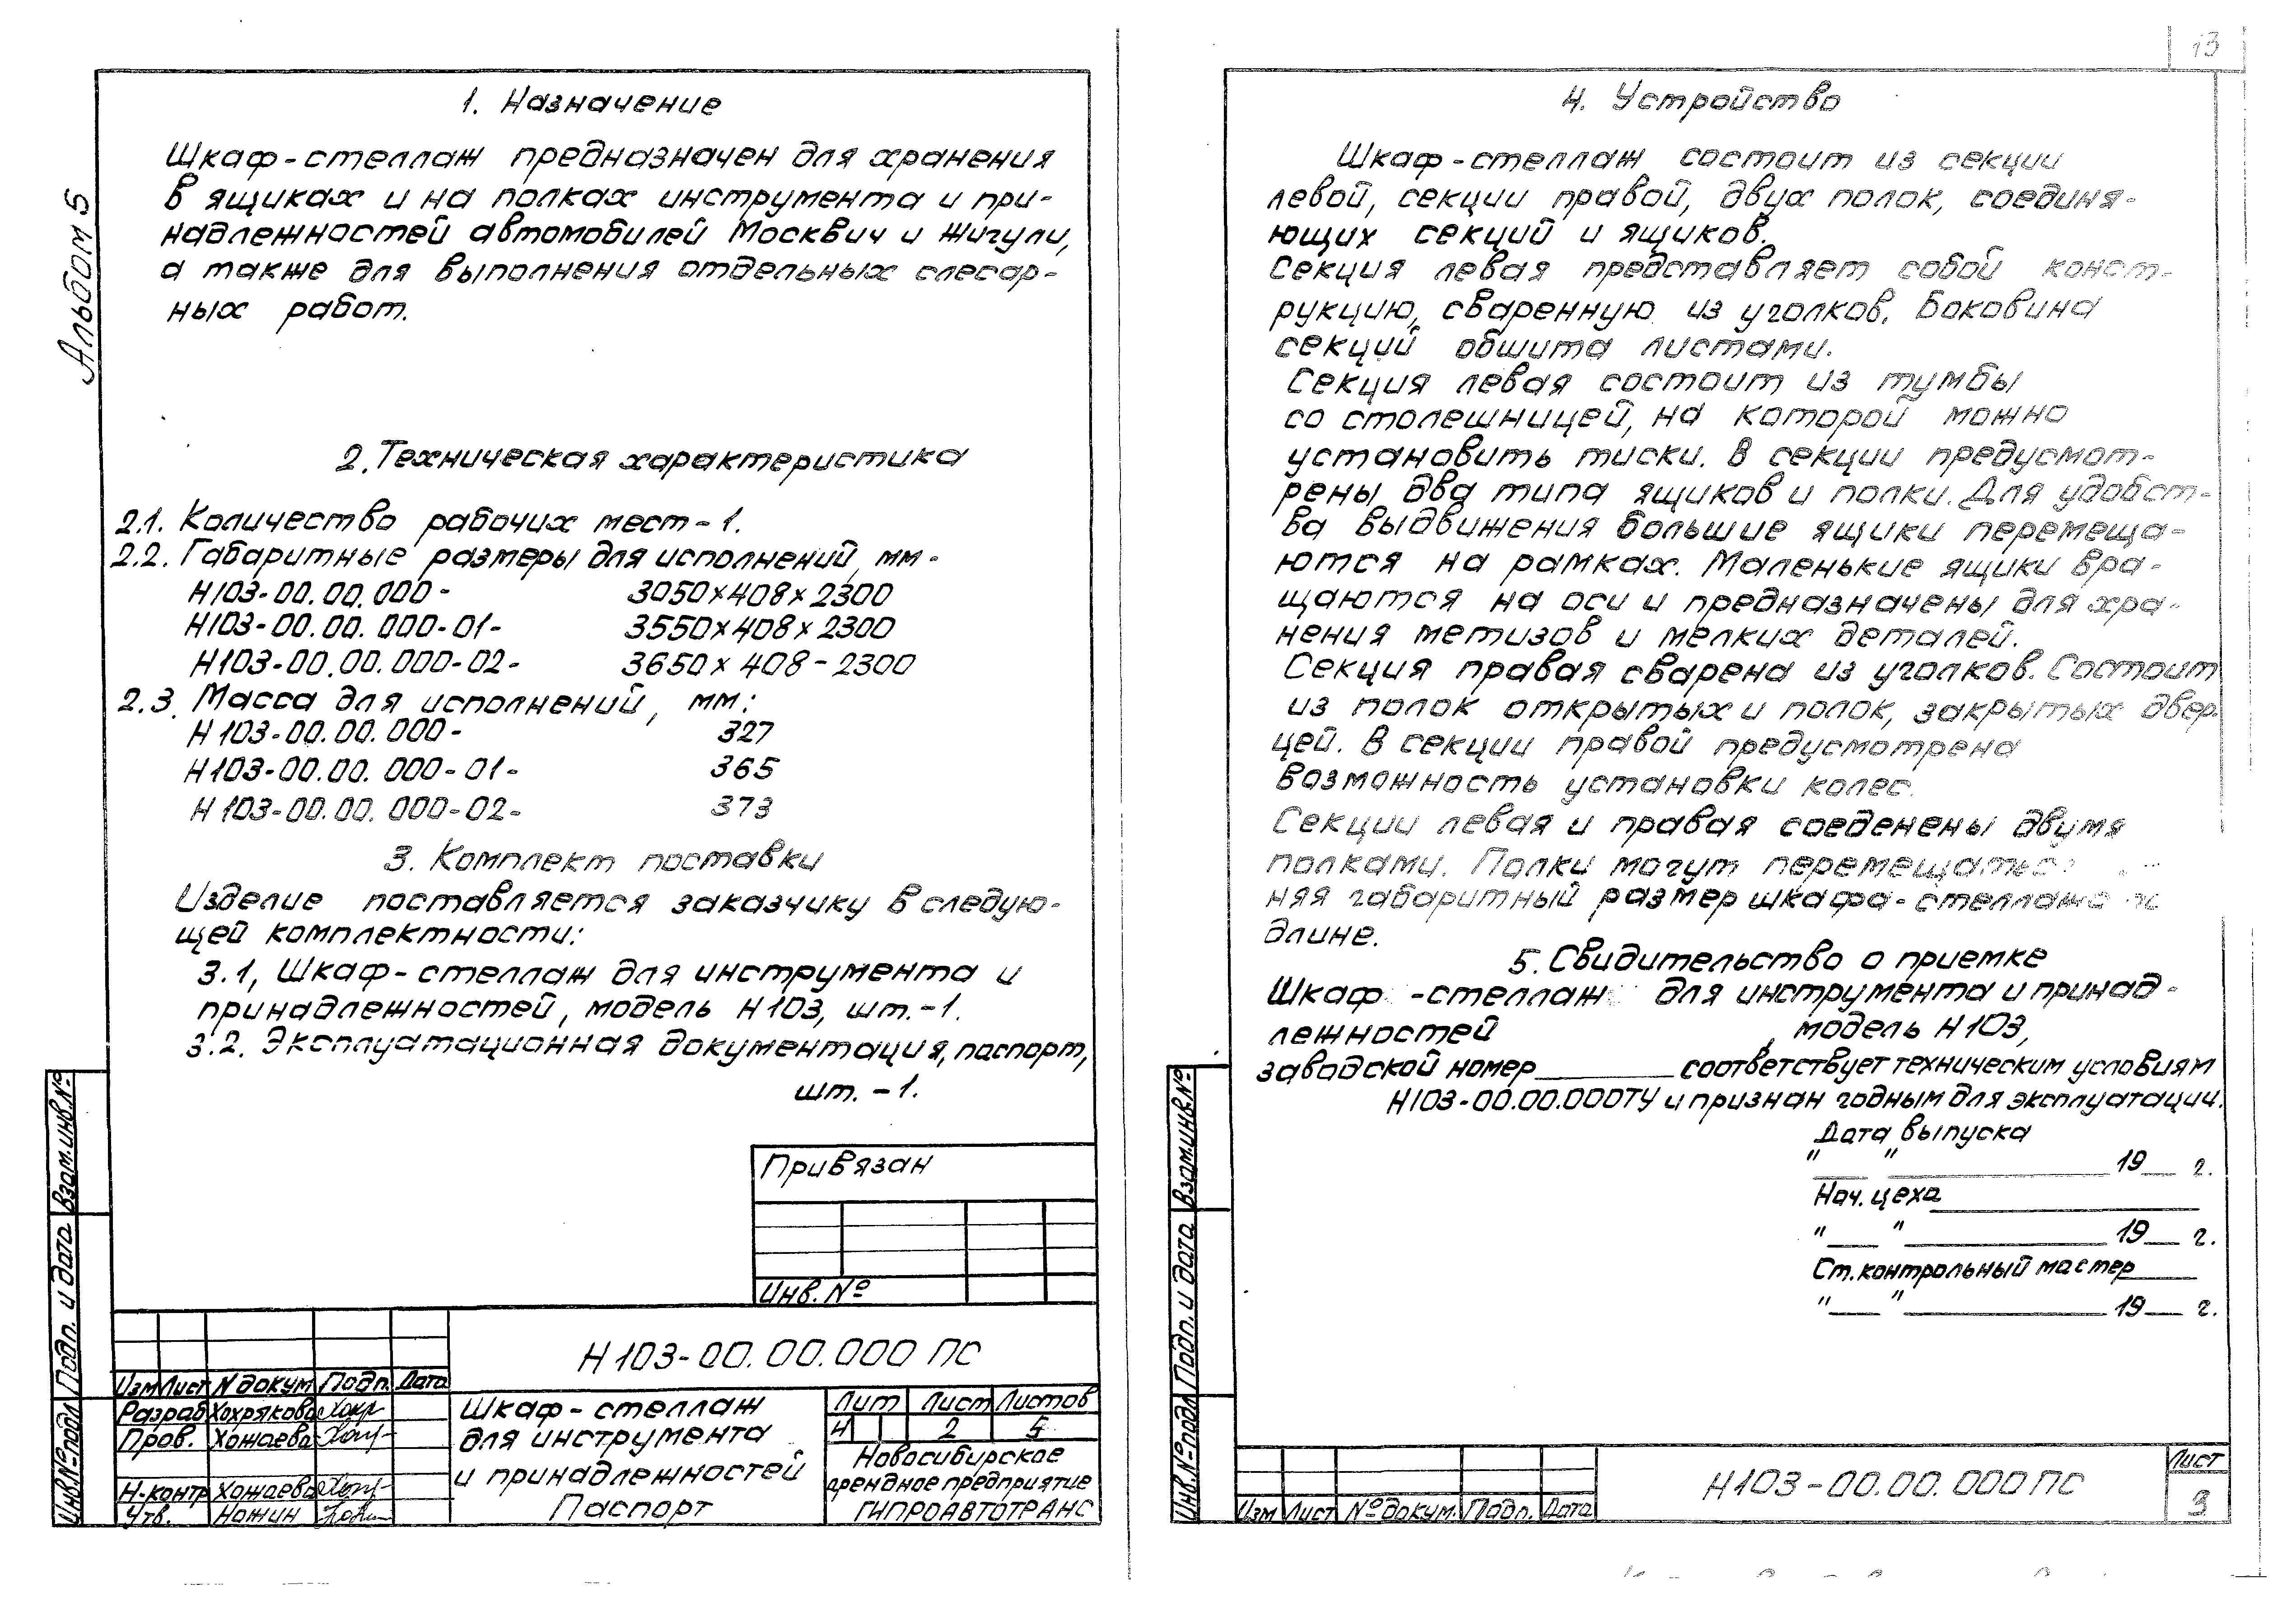 Альбом 5
1. Назначение
Шкаф-стеллаж предназначен для хранения
в ящиках и на полках инструмента и при-
надлежностей автомобилей Москвич и Жигули,
а также для выполнения отдельных слесар-
ных работ.
2. Техническая характеристика
2.1. Количество рабочих мест-1.
2.2. Габаритные размеры для исполнений, мм-
Н103-00.00.000- 3050×408×2300
Н103-00.00.000-01- 3550×408×2300
Н103-00.00.000-02- 3650×408-2300
2.3. Масса для исполнений, мм:
Н103-00.00.000- 327
Н103-00.00.000-01- 365
Н103-00.00.000-02- 373
3. Комплект поставки
Изделие поставляется заказчику в следую-
щей комплектности:
3.1, Шкаф-стеллаж для инструмента и
принадлежностей, модель Н103, шт.-1.
3.2. Эксплуатационная документация, паспорт,
шт. -1.
Привязан
Инв. №
Взам.инв.№
Подп. и дата
Инв.№подл
Н103-00.00.000 ПС
Изм Лист N докум Подп. Дата
Разраб Хохрякова
Пров. Хожаева
Н-контр Хожаева
Утв. Ножин
Шкаф-стеллаж
для инструмента
и принадлежностей
Паспорт
Лит Лист Листов
И 2 5
Новосибирское
арендное предприятие
ГИПРОАВТОТРАНС
13
4. Устройство
Шкаф-стеллаж состоит из секции
левой, секции правой, двух полок, соединя-
ющих секций и ящиков.
Секция левая представляет собой конст-
рукцию, сваренную из уголков. Боковина
секций обшита листами.
Секция левая состоит из тумбы
со столешницей, на которой можно
установить тиски. В секции предусмот-
рены два типа ящиков и полки. Для удобст-
ва выдвижения большие ящики перемеща-
ются на рамках. Маленькие ящики вра-
щаются на оси и предназначены для хра-
нения метизов и мелких деталей.
Секция правая сварена из уголков. Состоит
из полок открытых и полок, закрытых двер-
цей. В секции правой предусмотрена
возможность установки колес.
Секции левая и правая соеденены двумя
полками. Полки могут
няя габаритный размер шкафа-стеллажа по
длине.
5. Свидительство о приемке
Шкаф -стеллаж для инструмента и принад-
лежностей , модель Н103,
заводской номер________ соответствует техническим условиям
Н103-00.00.000ТУ и признан годным для эксплуатации.
Дата выпуска
"___" ____________ 19__ г.
Нач. цеха____________
"___" ____________ 19__ г.
Ст. контрольный мастер____
"___" ____________ 19__ г.
Взам.инв.№
Подп. и дата
Инв.№подл
Изм Лист № докум. Подп. Дата
Н103-00.00.000 ПС
Лист
3